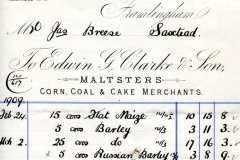 Framlingham,
Mr Jas Breese Saxtead
To Edwin G. Clarke & Son,
MALTSTERS
CORN, COAL & CAKE MERCHANTS.
1909
Feb 24 15 coms Flat Maize 10 15
5 coms Barley 3 15
Mch 2 25 coms do
5 coms Russian Barley